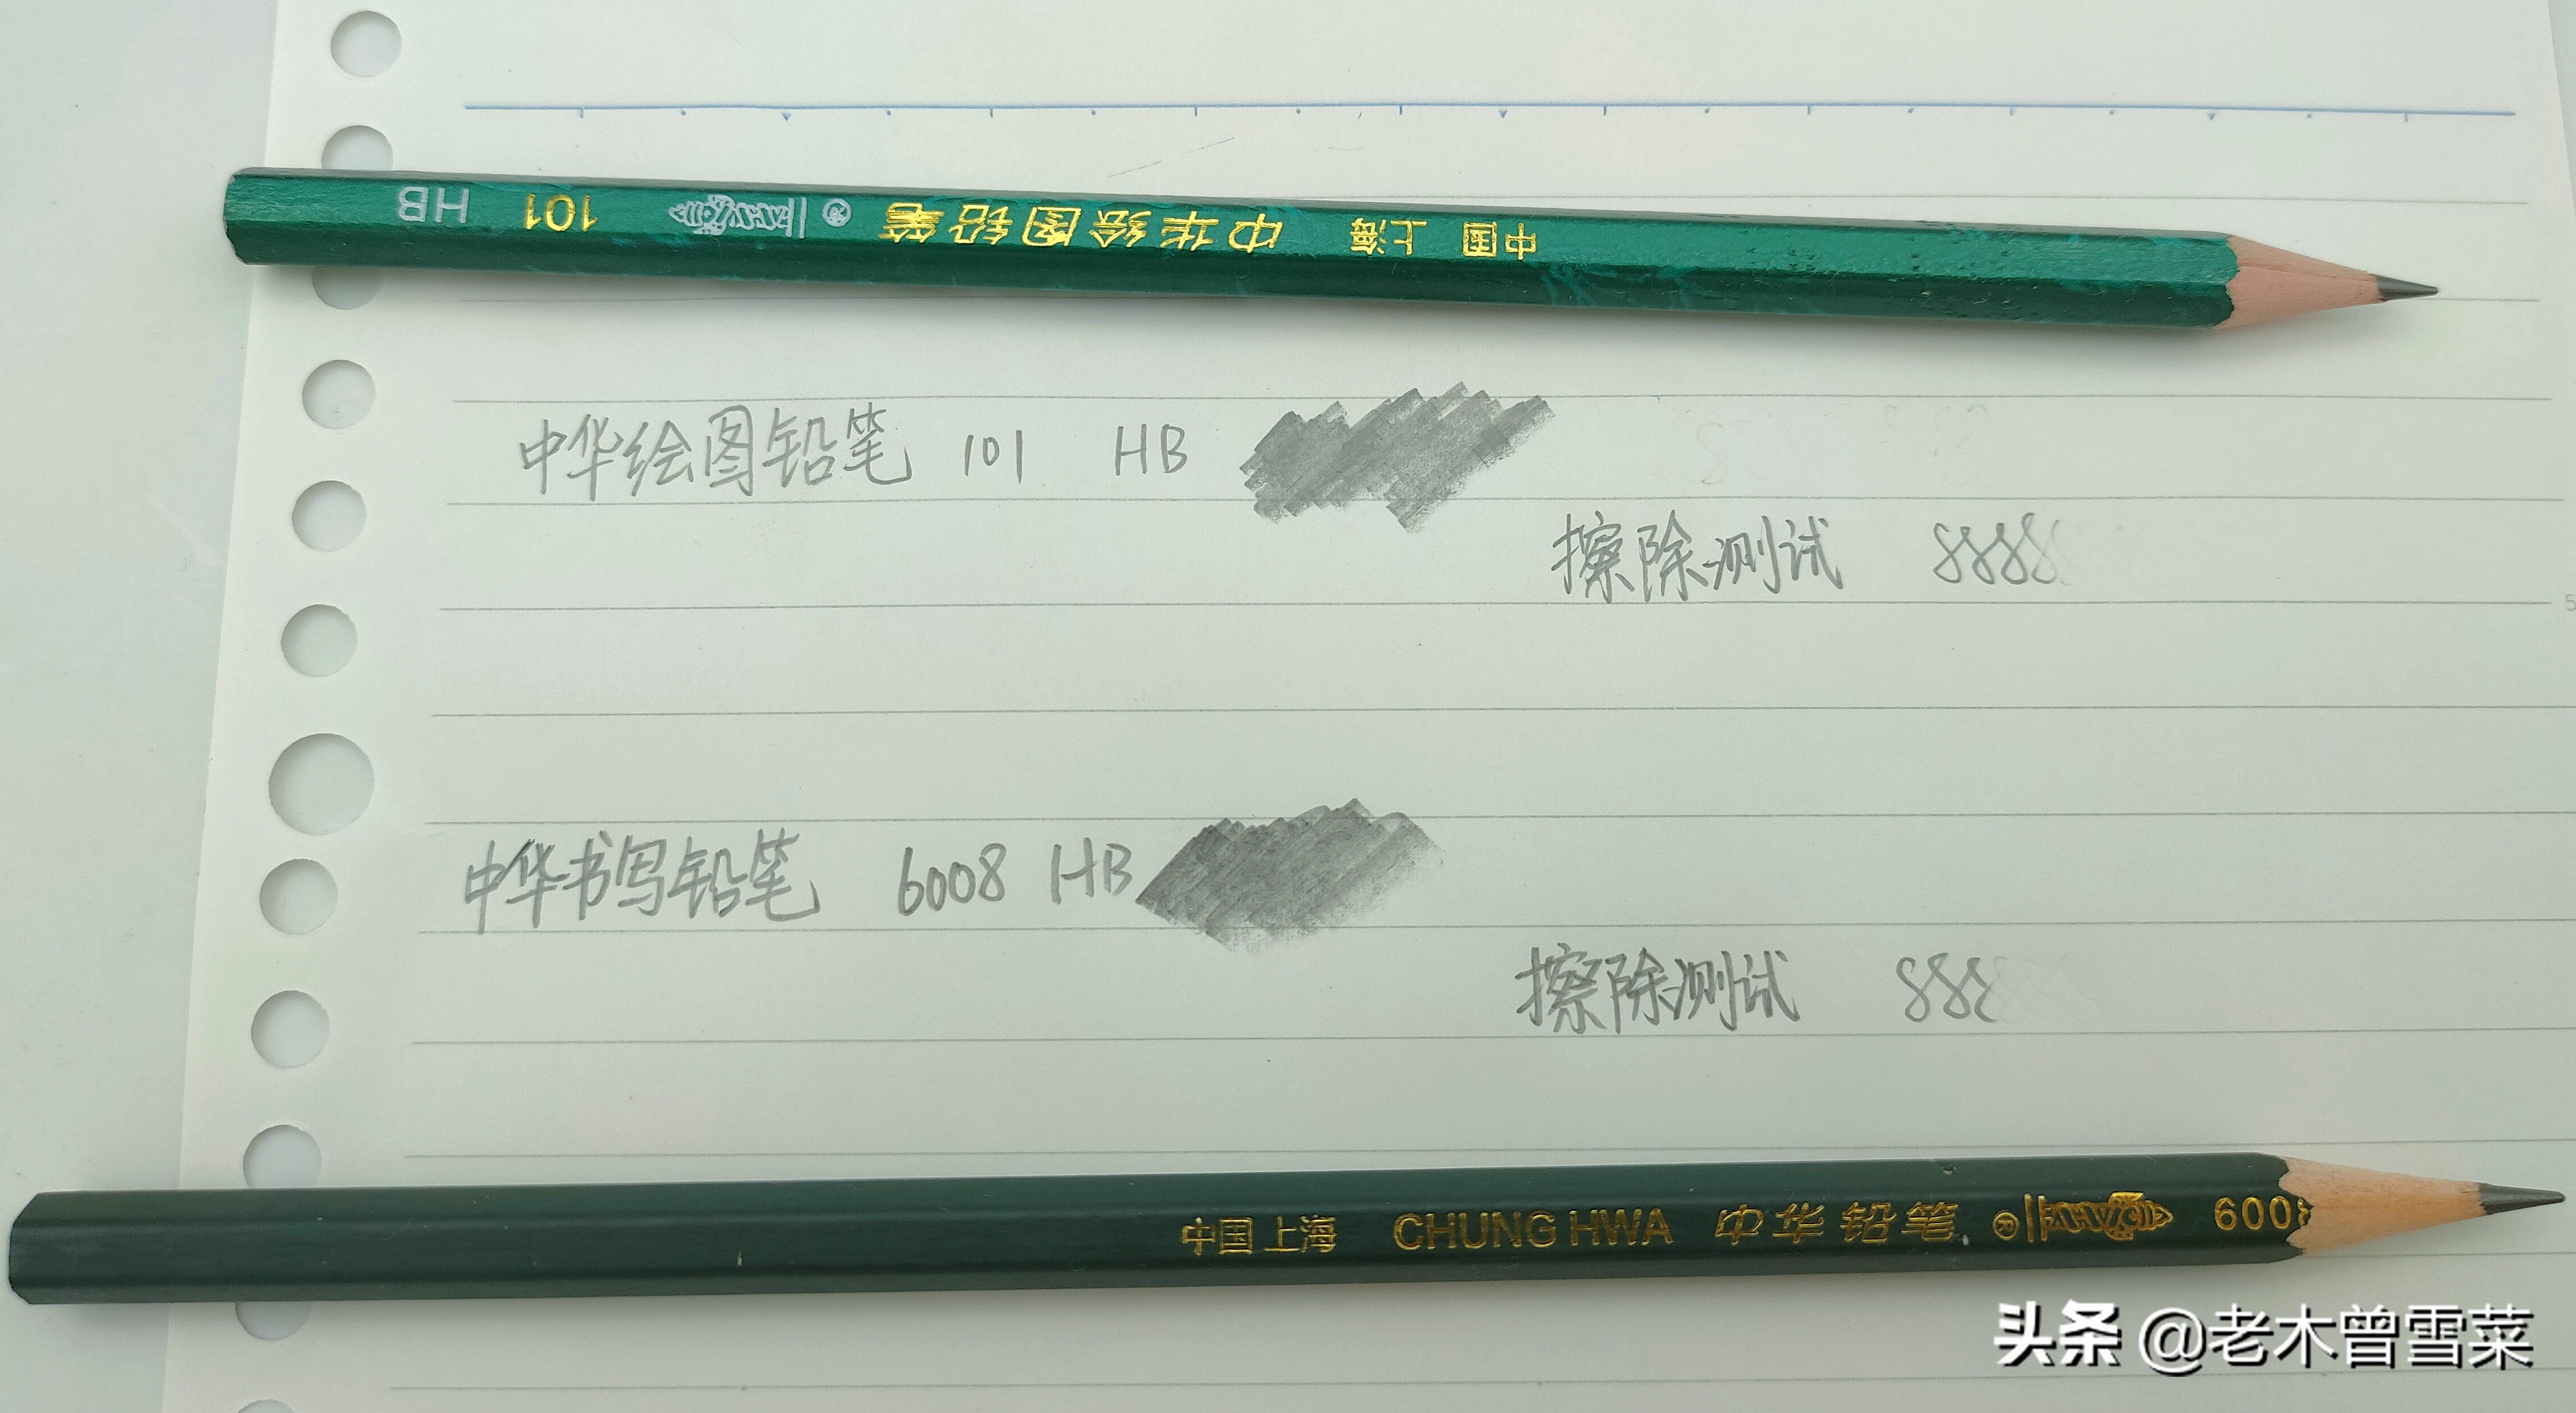 中国 上海 中华绘图铅笔 ® 101 HB
中华绘图铅笔 101 HB
擦除测试 8888
5
中华书写铅笔 6008 HB
擦除测试 888
中国 上海 CHUNG HWA 中华铅笔 ® 600
头条 @老木曾雪菜